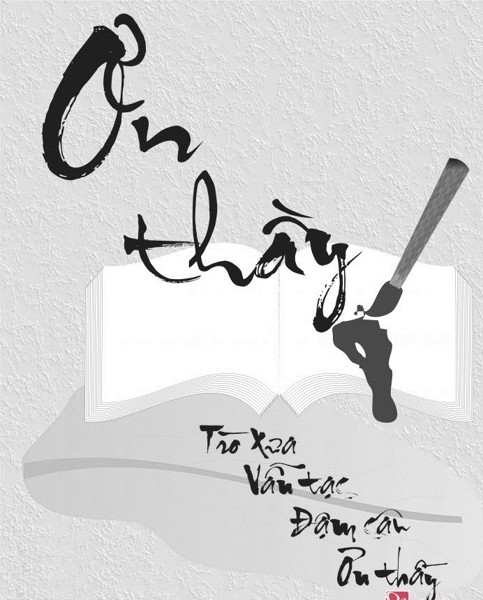 Ơn
thầy
Trò xưa
Vẫn tạc
Đậm
Ơn thầy